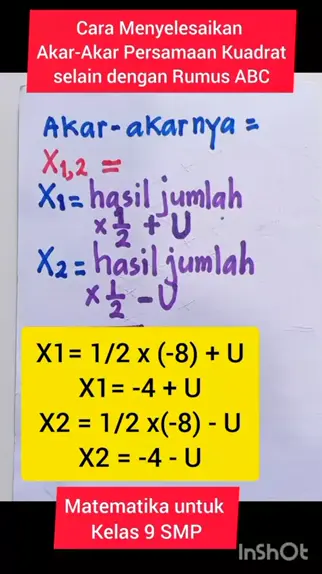 Cara Menyelesaikan
Akar-Akar Persamaan Kuadrat
selain dengan Rumus ABC
Akar-akarnya =
X1,2 =
X1 = hasil jumlah
x 1/2 + U
X2 = hasil jumlah
x 1/2 - U
X1= 1/2 x (-8) + U
X1= -4 + U
X2 = 1/2 x(-8) - U
X2 = -4 - U
Matematika untuk
Kelas 9 SMP
InShOt